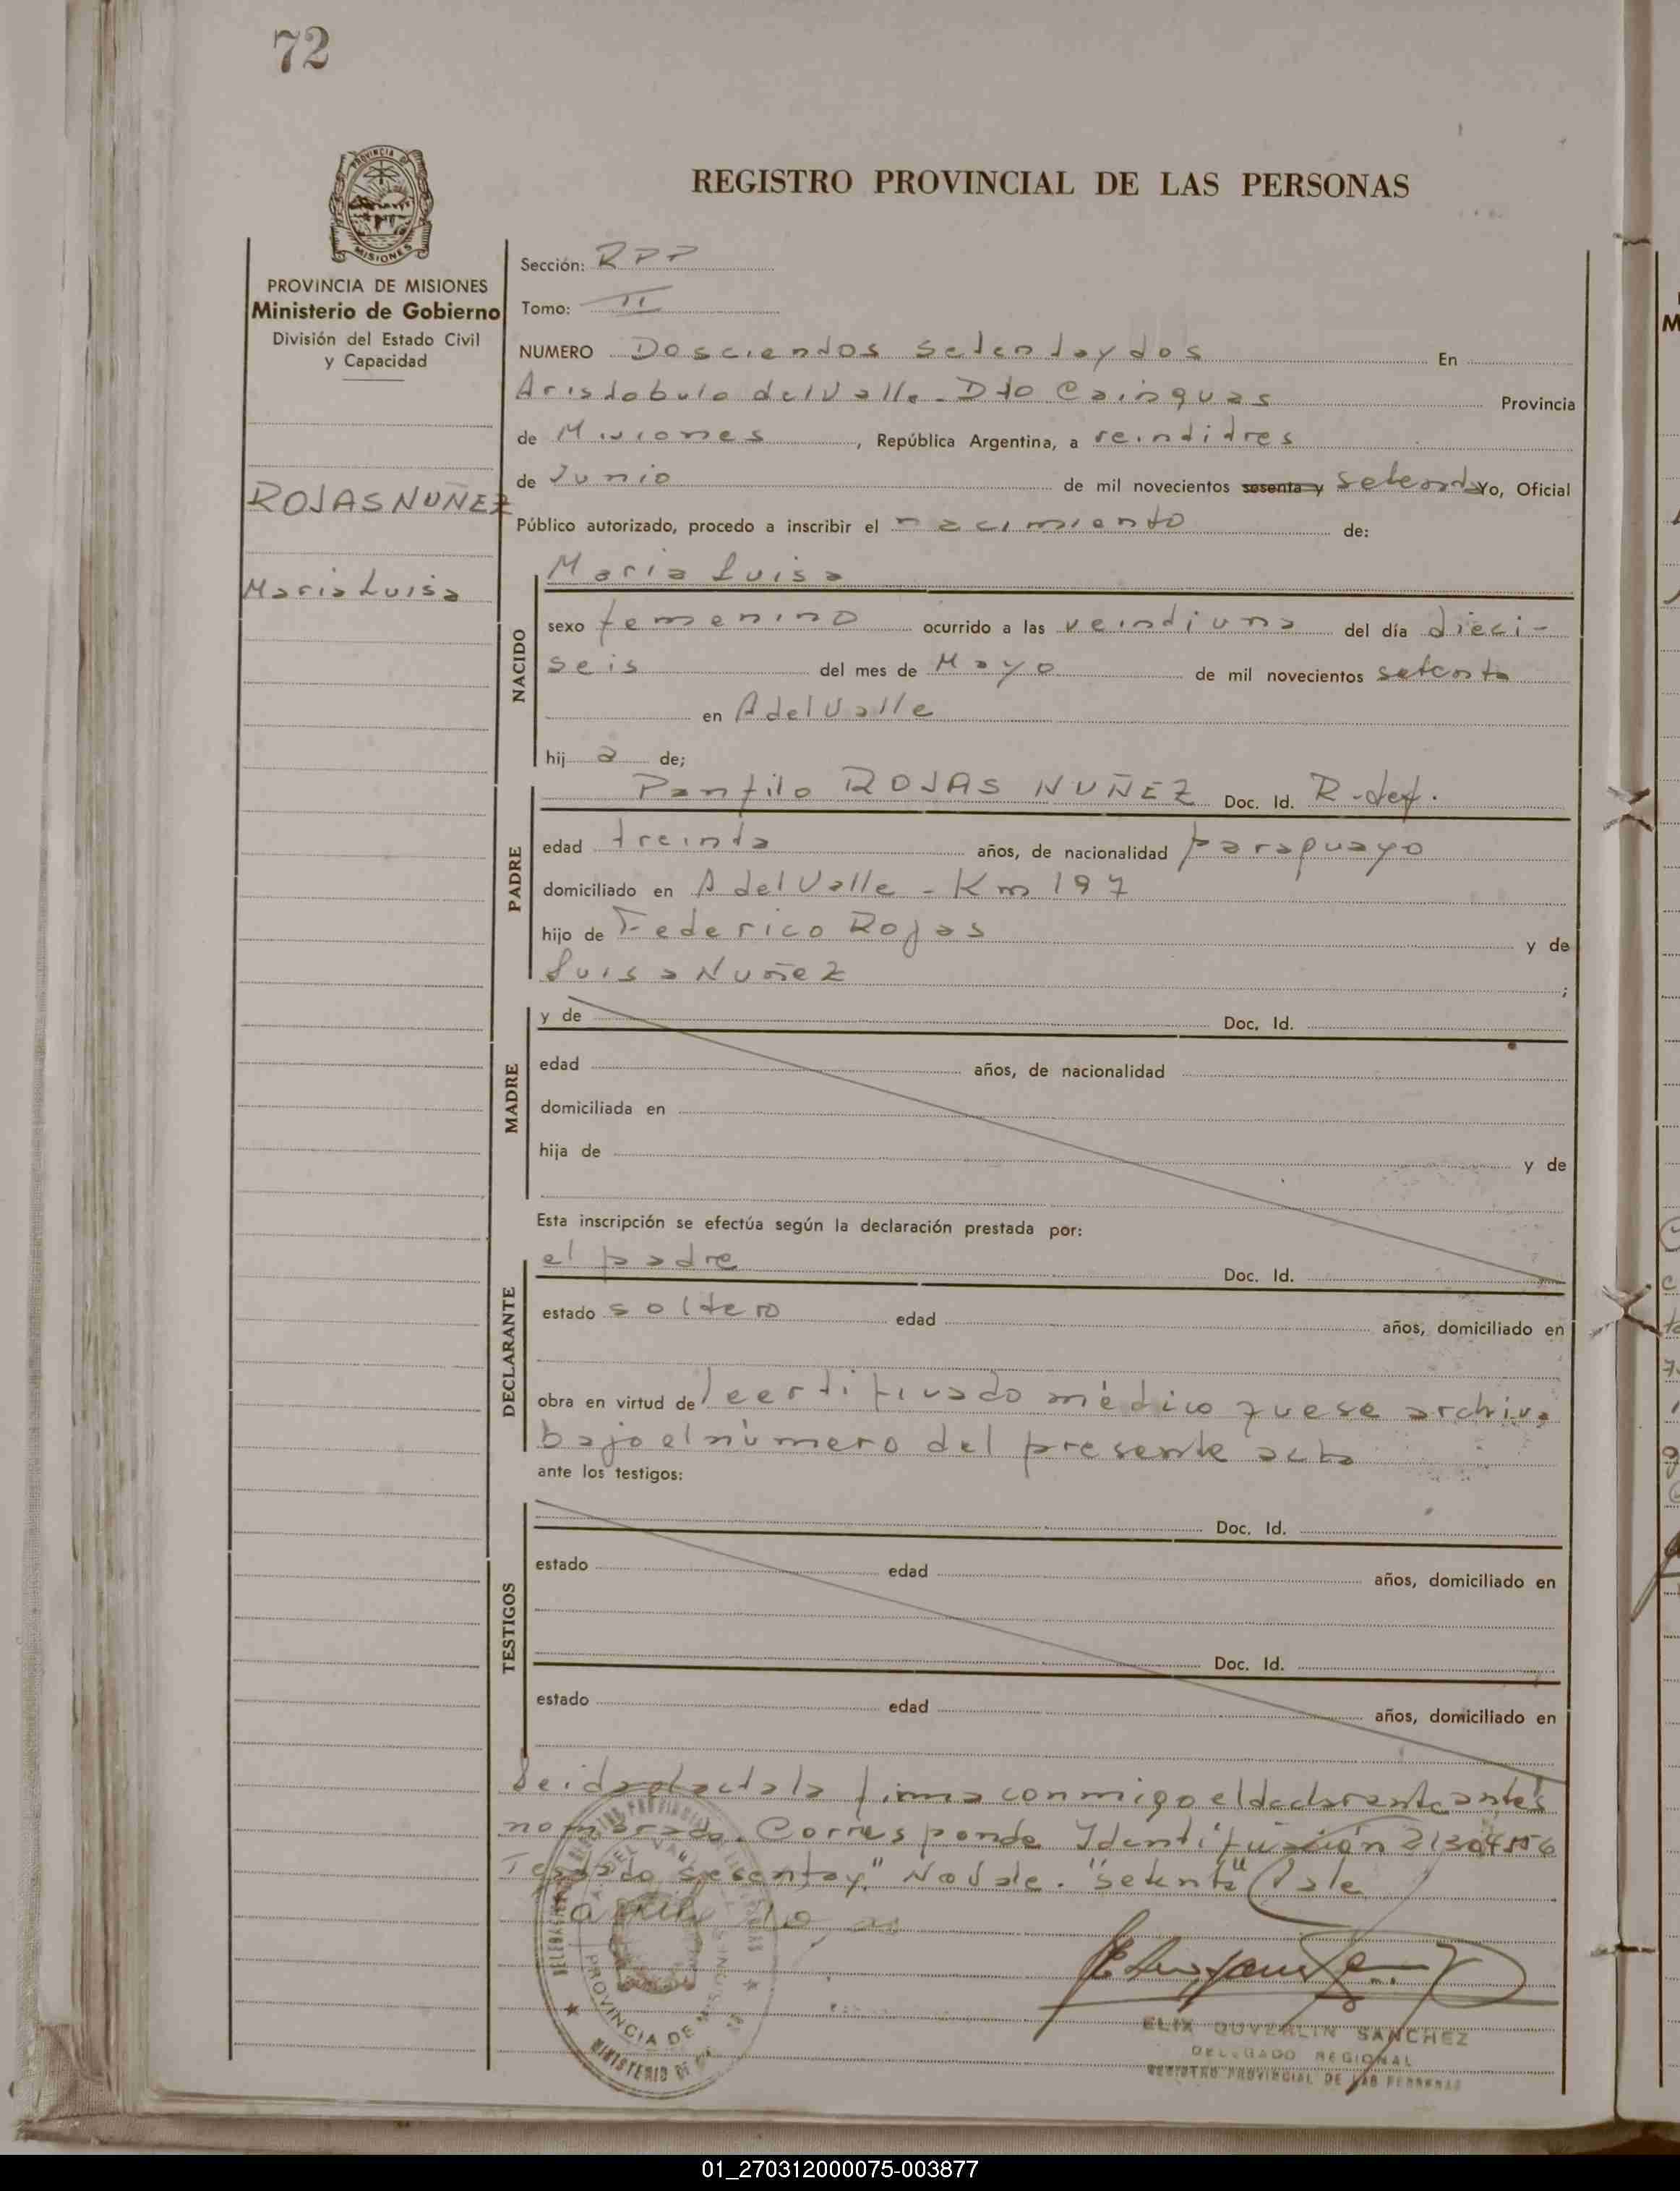 72
PROVINCIA DE MISIONES
REGISTRO PROVINCIAL DE LAS PERSONAS
PROVINCIA DE MISIONES
Ministerio de Gobierno
División del Estado Civil
y Capacidad
ROJAS NUÑEZ
Maria Luisa
Sección: RPP
Tomo: II
NUMERO Doscientos setenta y dos En
Aristobulo del Valle - Dto Cainguas Provincia
de Misiones, República Argentina, a veintitres
de Junio de mil novecientos sesenta y setenta Yo, Oficial
Público autorizado, procedo a inscribir el nacimiento de:
NACIDO
Maria Luisa
sexo femenino ocurrido a las veintiuna del día dieci-
seis del mes de Mayo de mil novecientos setenta
en A del Valle
hij a de;
PADRE
Panfilo ROJAS NUÑEZ Doc. Id. R-def.
edad treinta años, de nacionalidad paraguayo
domiciliado en A del Valle - Km 197
hijo de Federico Rojas y de
Luisa Nuñez ;
MADRE
y de Doc. Id.
edad años, de nacionalidad
domiciliada en
hija de y de
Esta inscripción se efectúa según la declaración prestada por:
DECLARANTE
el padre Doc. Id.
estado soltero edad años, domiciliado en
obra en virtud de certificado médico que se archiva
bajo el número del presente acta
ante los testigos:
TESTIGOS
Doc. Id.
estado edad años, domiciliado en
Doc. Id.
estado edad años, domiciliado en
Leida el acta la firma conmigo el declarante antes
nombrado. Corresponde Identificación
Testado sesenta y" No vale. "setenta" Vale
PROVINCIA DE MISIONES
MINISTERIO DE
ELIX SANCHEZ
DELEGADO REGIONAL
REGISTRO PROVINCIAL DE LAS PERSONAS
01_270312000075-003877